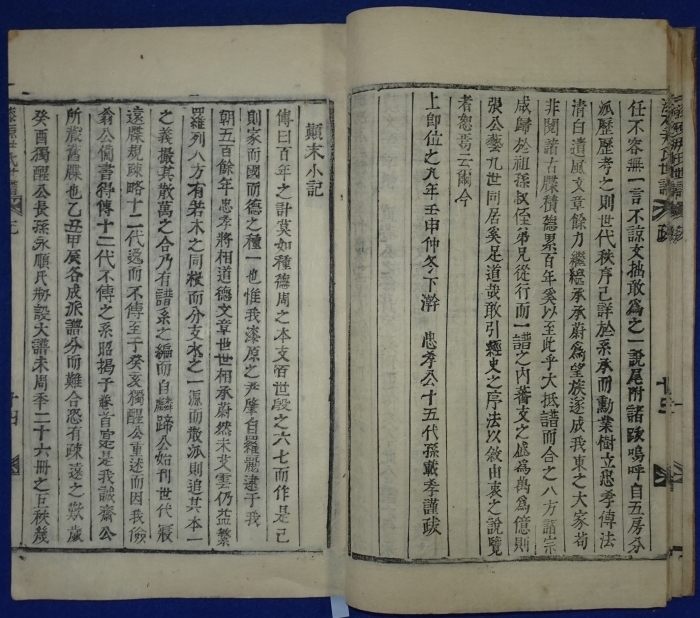 任不容無一言不諒文拙敢為之一說尾附諸跋嗚呼自五房分
派歷歷考之則世代秩序已詳於系承而勳業樹立忠孝傳法
清白遺風文章餘力繼繼承承蔚為望族遂成我東之大家苟
非閱諸古牒積德累百年奚以至此乎大抵譜而合之八方諸宗
咸歸於祖孫叔侄弟兄從行而一譜之內蕃支之盛為萬為億則
張公藝九世同居奚足道哉敢引經史之序法以敘由衷之說覽
者恕焉云爾今
上即位之九年壬申仲冬下澣 忠孝公十五代孫載孝謹跋
顛末小記
傳曰百年之計莫如種德周之本支百世殷之六七而作是已
則家而國而德之種一也惟我漆原之尹肇自羅麗逮于我
朝五百餘年忠孝將相道德文章世世相承蔚然未艾雲仍益繁
羅列八方有若木之同根而分支水之一源而散派則追其本一
之義撮其散萬之合乃有譜系之編而自麟蹄公始刊世代寢
遠牒規疎略十二代遠而不傳至于癸亥獨醒公重述而因我儉
翁公備書得傳十二代不傳之系昭揭于卷首寔是我誠齋公
所藏舊牒也乙丑甲庚各成派譜分而難合恐有疎遠之歎歲
癸酉獨醒公長孫永順氏刱設大譜未周季二十六冊之巨秩幾